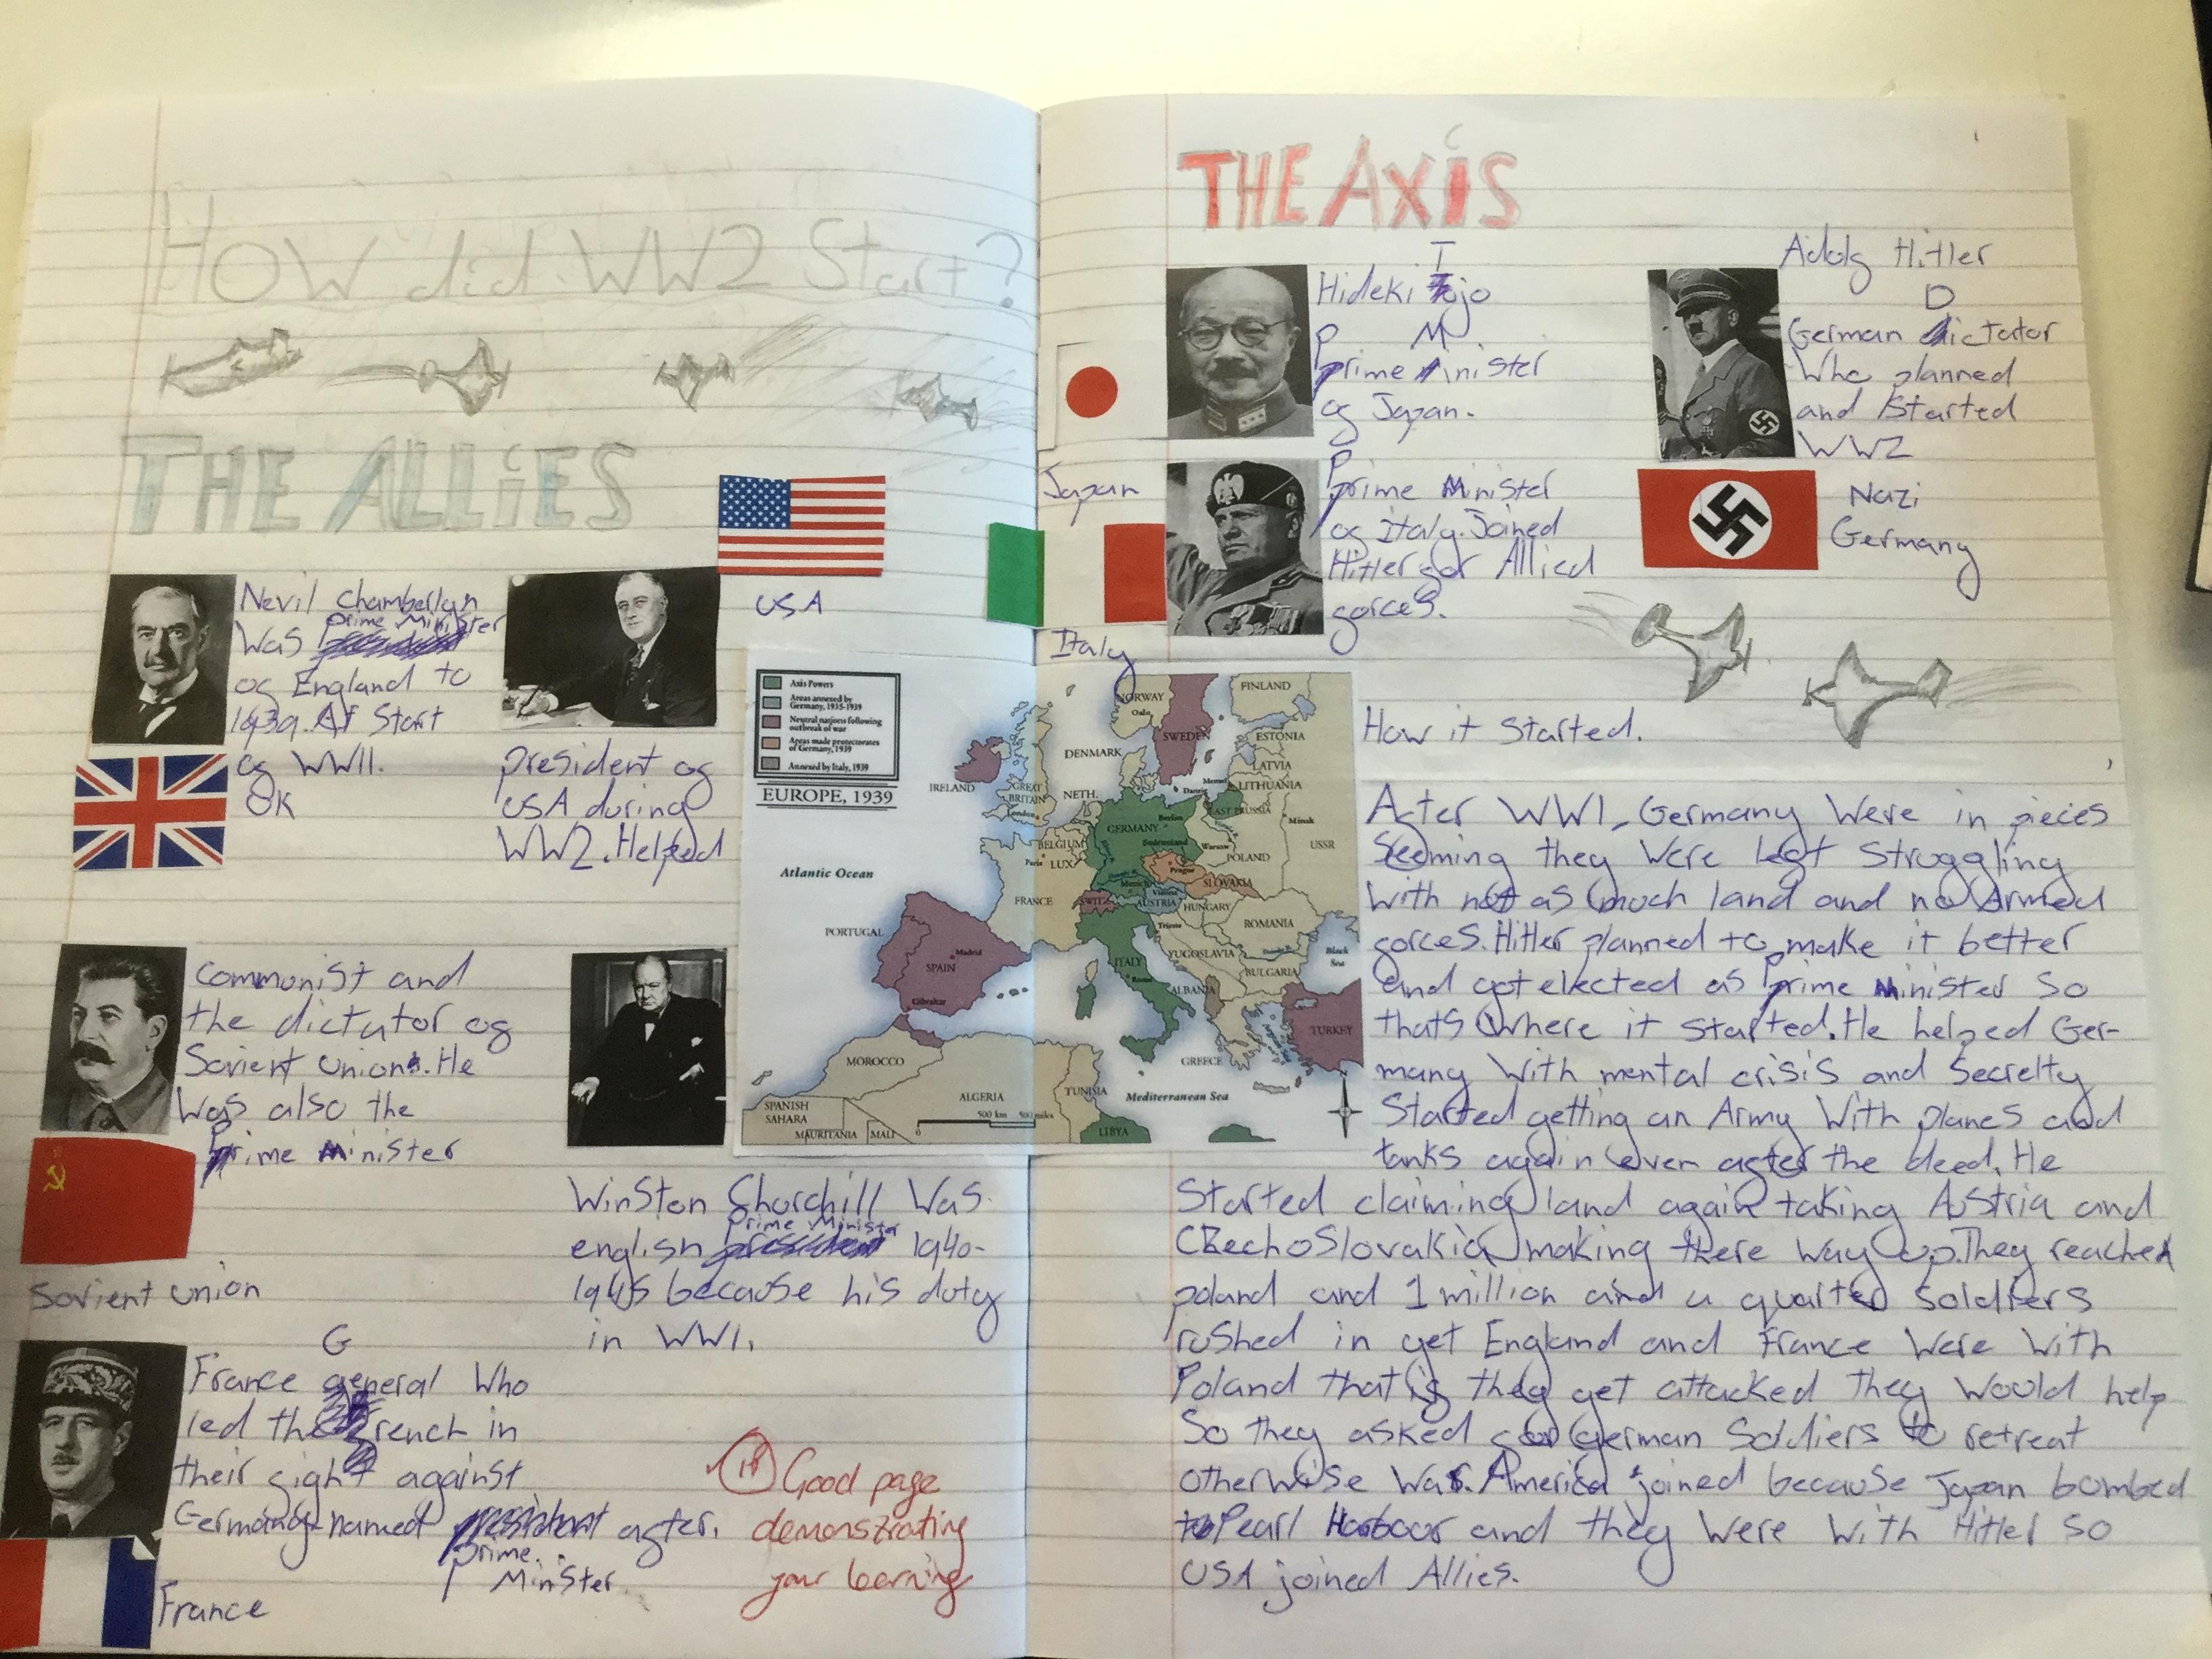 HOW did WW2 Start?
THE ALLiES
USA
Nevil Chamberlyn
Was prime Minister
of England to
1939. At Start
of WWII.
UK
president of
USA during
WW2. Helped
Communist and
the dictator of
Sovient Union. He
Was also the
Prime Minister
Sovient union
Winston Churchill Was
english prime Minister 1940-
1945 because his duty
in WW1.
France General Who
led the french in
their fight against
Germany named after.
prime
Minister.
France
Good page
demonstrating
your learning
THE AXiS
Hideki Tojo
Prime Minister
of Japan.
Japan
Adolf Hitler
German Dictator
Who planned
and Started
WW2
Nazi
Germany
Prime Minister
of Italy. Joined
Hitler for Allied
forces.
Italy
Axis Powers
Areas annexed by
Germany, 1935-1939
Neutral nations following
outbreak of war
Areas made protectorates
of Germany, 1939
Annexed by Italy, 1939
EUROPE, 1939
NORWAY
Oslo
FINLAND
SWEDEN
ESTONIA
LATVIA
LITHUANIA
DENMARK
Memel
Danzig
EAST PRUSSIA
IRELAND
GREAT
BRITAIN
London
NETH.
Berlin
GERMANY
Minsk
BELGIUM
Sudetenland
Warsaw
POLAND
USSR
Paris
LUX
Prague
SLOVAKIA
Atlantic Ocean
FRANCE
Munich
Vienna
SWITZ
AUSTRIA
HUNGARY
ROMANIA
PORTUGAL
Madrid
SPAIN
Trieste
YUGOSLAVIA
Black
Sea
ITALY
Rome
BULGARIA
ALBANIA
Gibraltar
TURKEY
GREECE
MOROCCO
ALGERIA
TUNISIA
Mediterranean Sea
SPANISH
SAHARA
MAURITANIA
MALI
0
500 km
500 miles
LIBYA
N
How it Started.
After WW1, Germany Were in pieces
Seeming they Were left Struggling
With not as much land and no Armed
forces. Hitler planned to make it better
and got elected as Prime Minister So
thats Where it Started. He helped Ger-
many With mental crisis and Secretly
Started getting an Army With planes and
tanks again even after the deed. He
Started claiming land again taking Austria and
Czechoslovakia making there Way up. They reached
poland and 1 million and a quarter Soldiers
rushed in yet England and France Were With
Poland that if they get attacked they Would help
So they asked for German Soldiers to retreat
otherwise War. America joined because Japan bombed
Pearl Harbour and they Were With Hitler So
USA joined Allies.